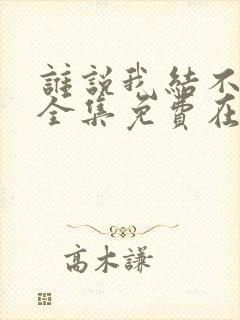 誰説我結不
全集免費在
高木謙